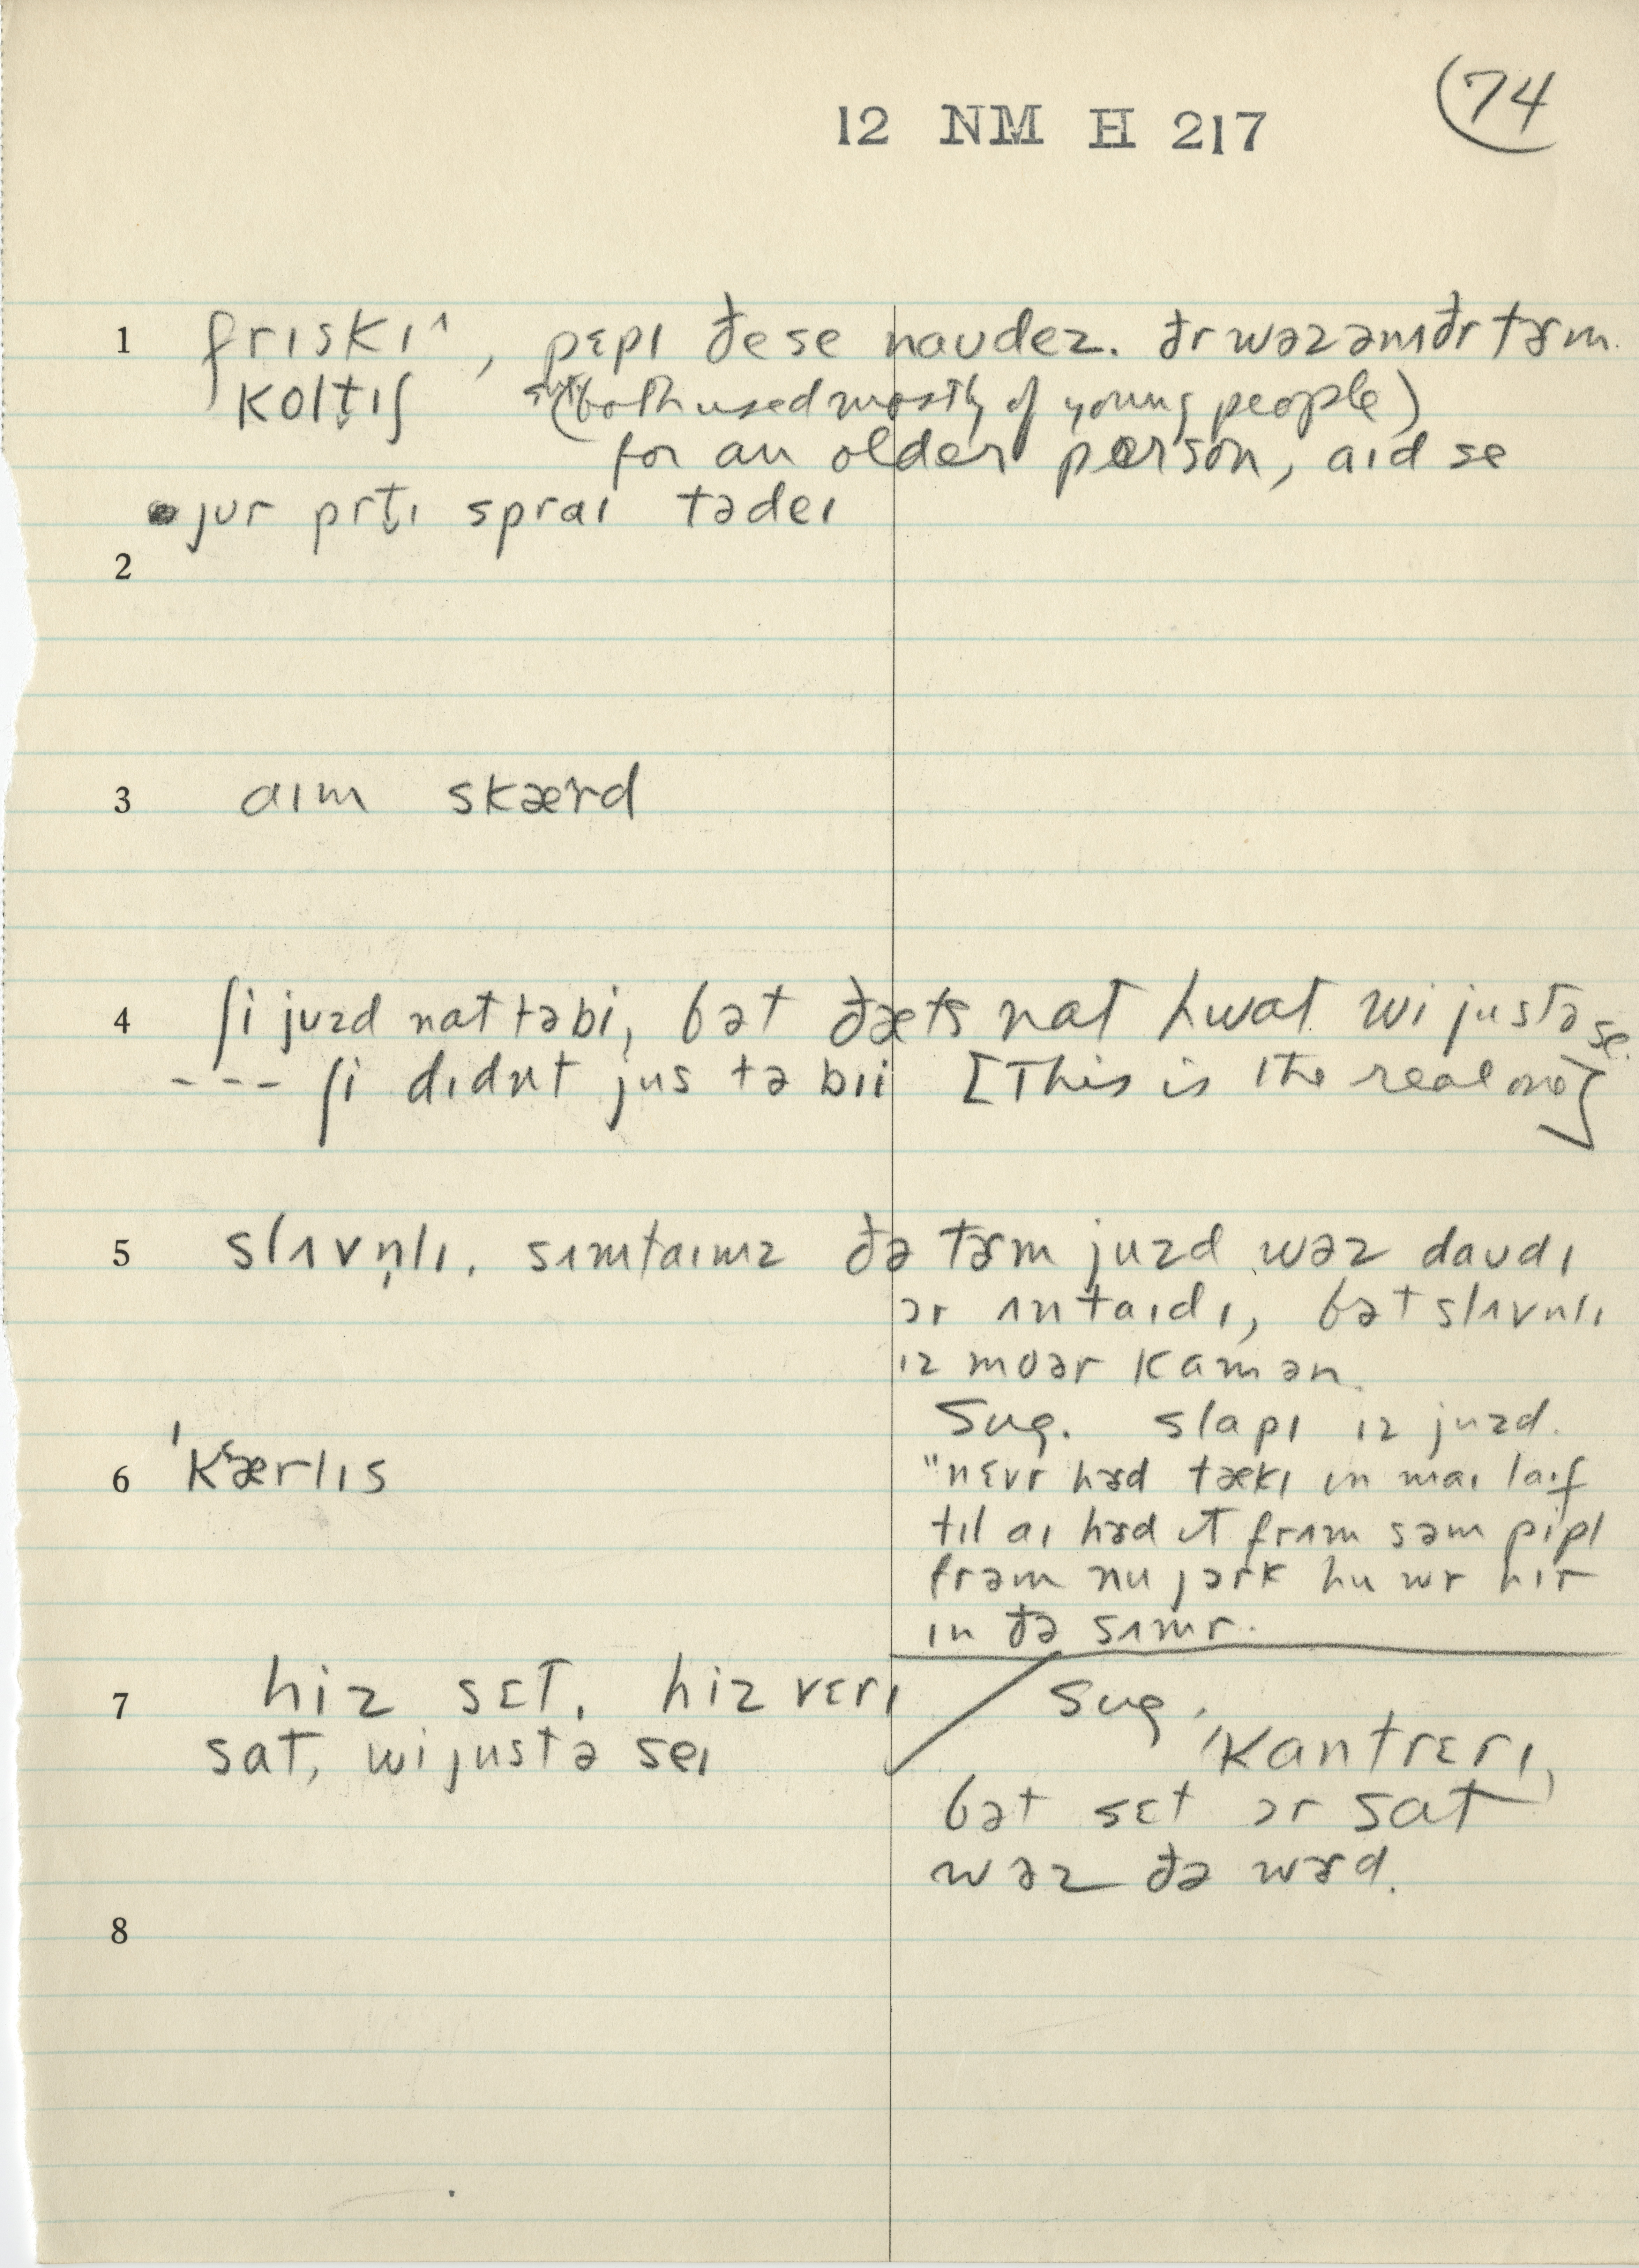 74
12 NM H 217
1 frɪskɪ^, pɛpɪ ðe se naudez. ðr wəz ənʌðr tɝm.
koltɪʃ (both used mostly of young people)
for an older person, aɪd se
jur prt̬ɪ spraɪ tədeɪ
2
3 aɪm skærd
4 ʃi juzd nat tə bi, bət ðæts nat hwat wi justə se.
--- ʃi dɪdnt jus tə bii [This is the real one]
5 slʌvn̩lɪ. sʌmtaɪmz ðə tɝm juzd wəz daudɪ
ər ʌntaɪdɪ, bət slʌvnlɪ
ɪz moər kamən.
Sug. slapɪ ɪz juzd.
6 'kʰærlɪs
"nɛvr hɝd tækɪ ɪn maɪ laɪf
tɪl aɪ hɝd ɪt frʌm səm pipl
frəm nu jɔrk hu wr hɪr
ɪn ðə sʌmr.
7 hiz sɛt. hiz vɛrɪ
sat, wi justə seɪ
Sug. 'kantrɛrɪ,
bət sɛt ər sat
wəz ðə wɝd.
8